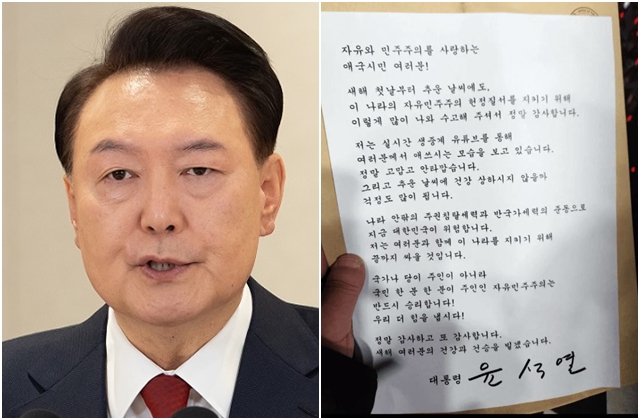 자유와 민주주의를 사랑하는
애국시민 여러분!
새해 첫날부터 추운 날씨에도,
이 나라의 자유민주주의 헌정질서를 지키기 위해
이렇게 많이 나와 수고해 주셔서 정말 감사합니다.
저는 실시간 생중계 유튜브를 통해
여러분께서 애쓰시는 모습을 보고 있습니다.
정말 고맙고 안타깝습니다.
그리고 추운 날씨에 건강 상하시지 않을까
걱정도 많이 됩니다.
나라 안팎의 주권침탈세력과 반국가세력의 준동으로
지금 대한민국이 위험합니다.
저는 여러분과 함께 이 나라를 지키기 위해
끝까지 싸울 것입니다.
국가나 당이 주인이 아니라
국민 한 분 한 분이 주인인 자유민주주의는
반드시 승리합니다!
우리 더 힘을 냅시다!
정말 감사하고 또 감사합니다.
새해 여러분의 건강과 건승을 빌겠습니다.
대통령 윤석열